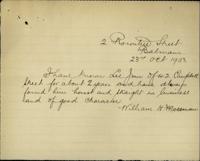 2 Rowntree Street
Balmain
23rd Oct 1903
I have known Lee Jim of 42 Campbell
Street for about 2 years and have always
found him honest and straight in business
and of good character
William H. Mossman